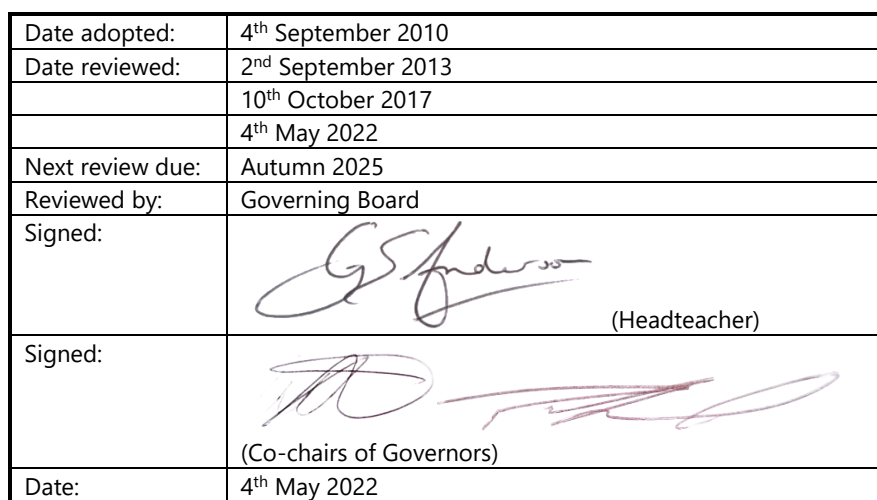 Date adopted: 4th September 2010
Date reviewed: 2nd September 2013
10th October 2017
4th May 2022
Next review due: Autumn 2025
Reviewed by: Governing Board
Signed:
GS Anderson
(Headteacher)
Signed:
(Co-chairs of Governors)
Date: 4th May 2022